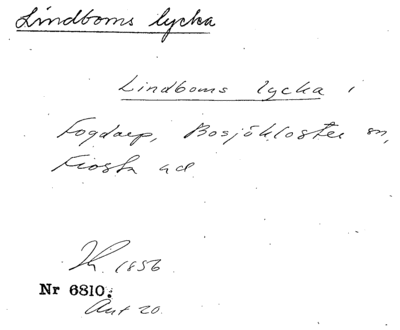 Lindboms lycka
Lindboms lycka i
Fogdarp, Bosjökloster sn,
Frosta hd
1856
Nr 6810.
20.